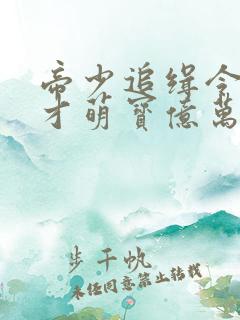 帝少追缉令
才萌寶億萬
步千帆
未经同意禁止转载